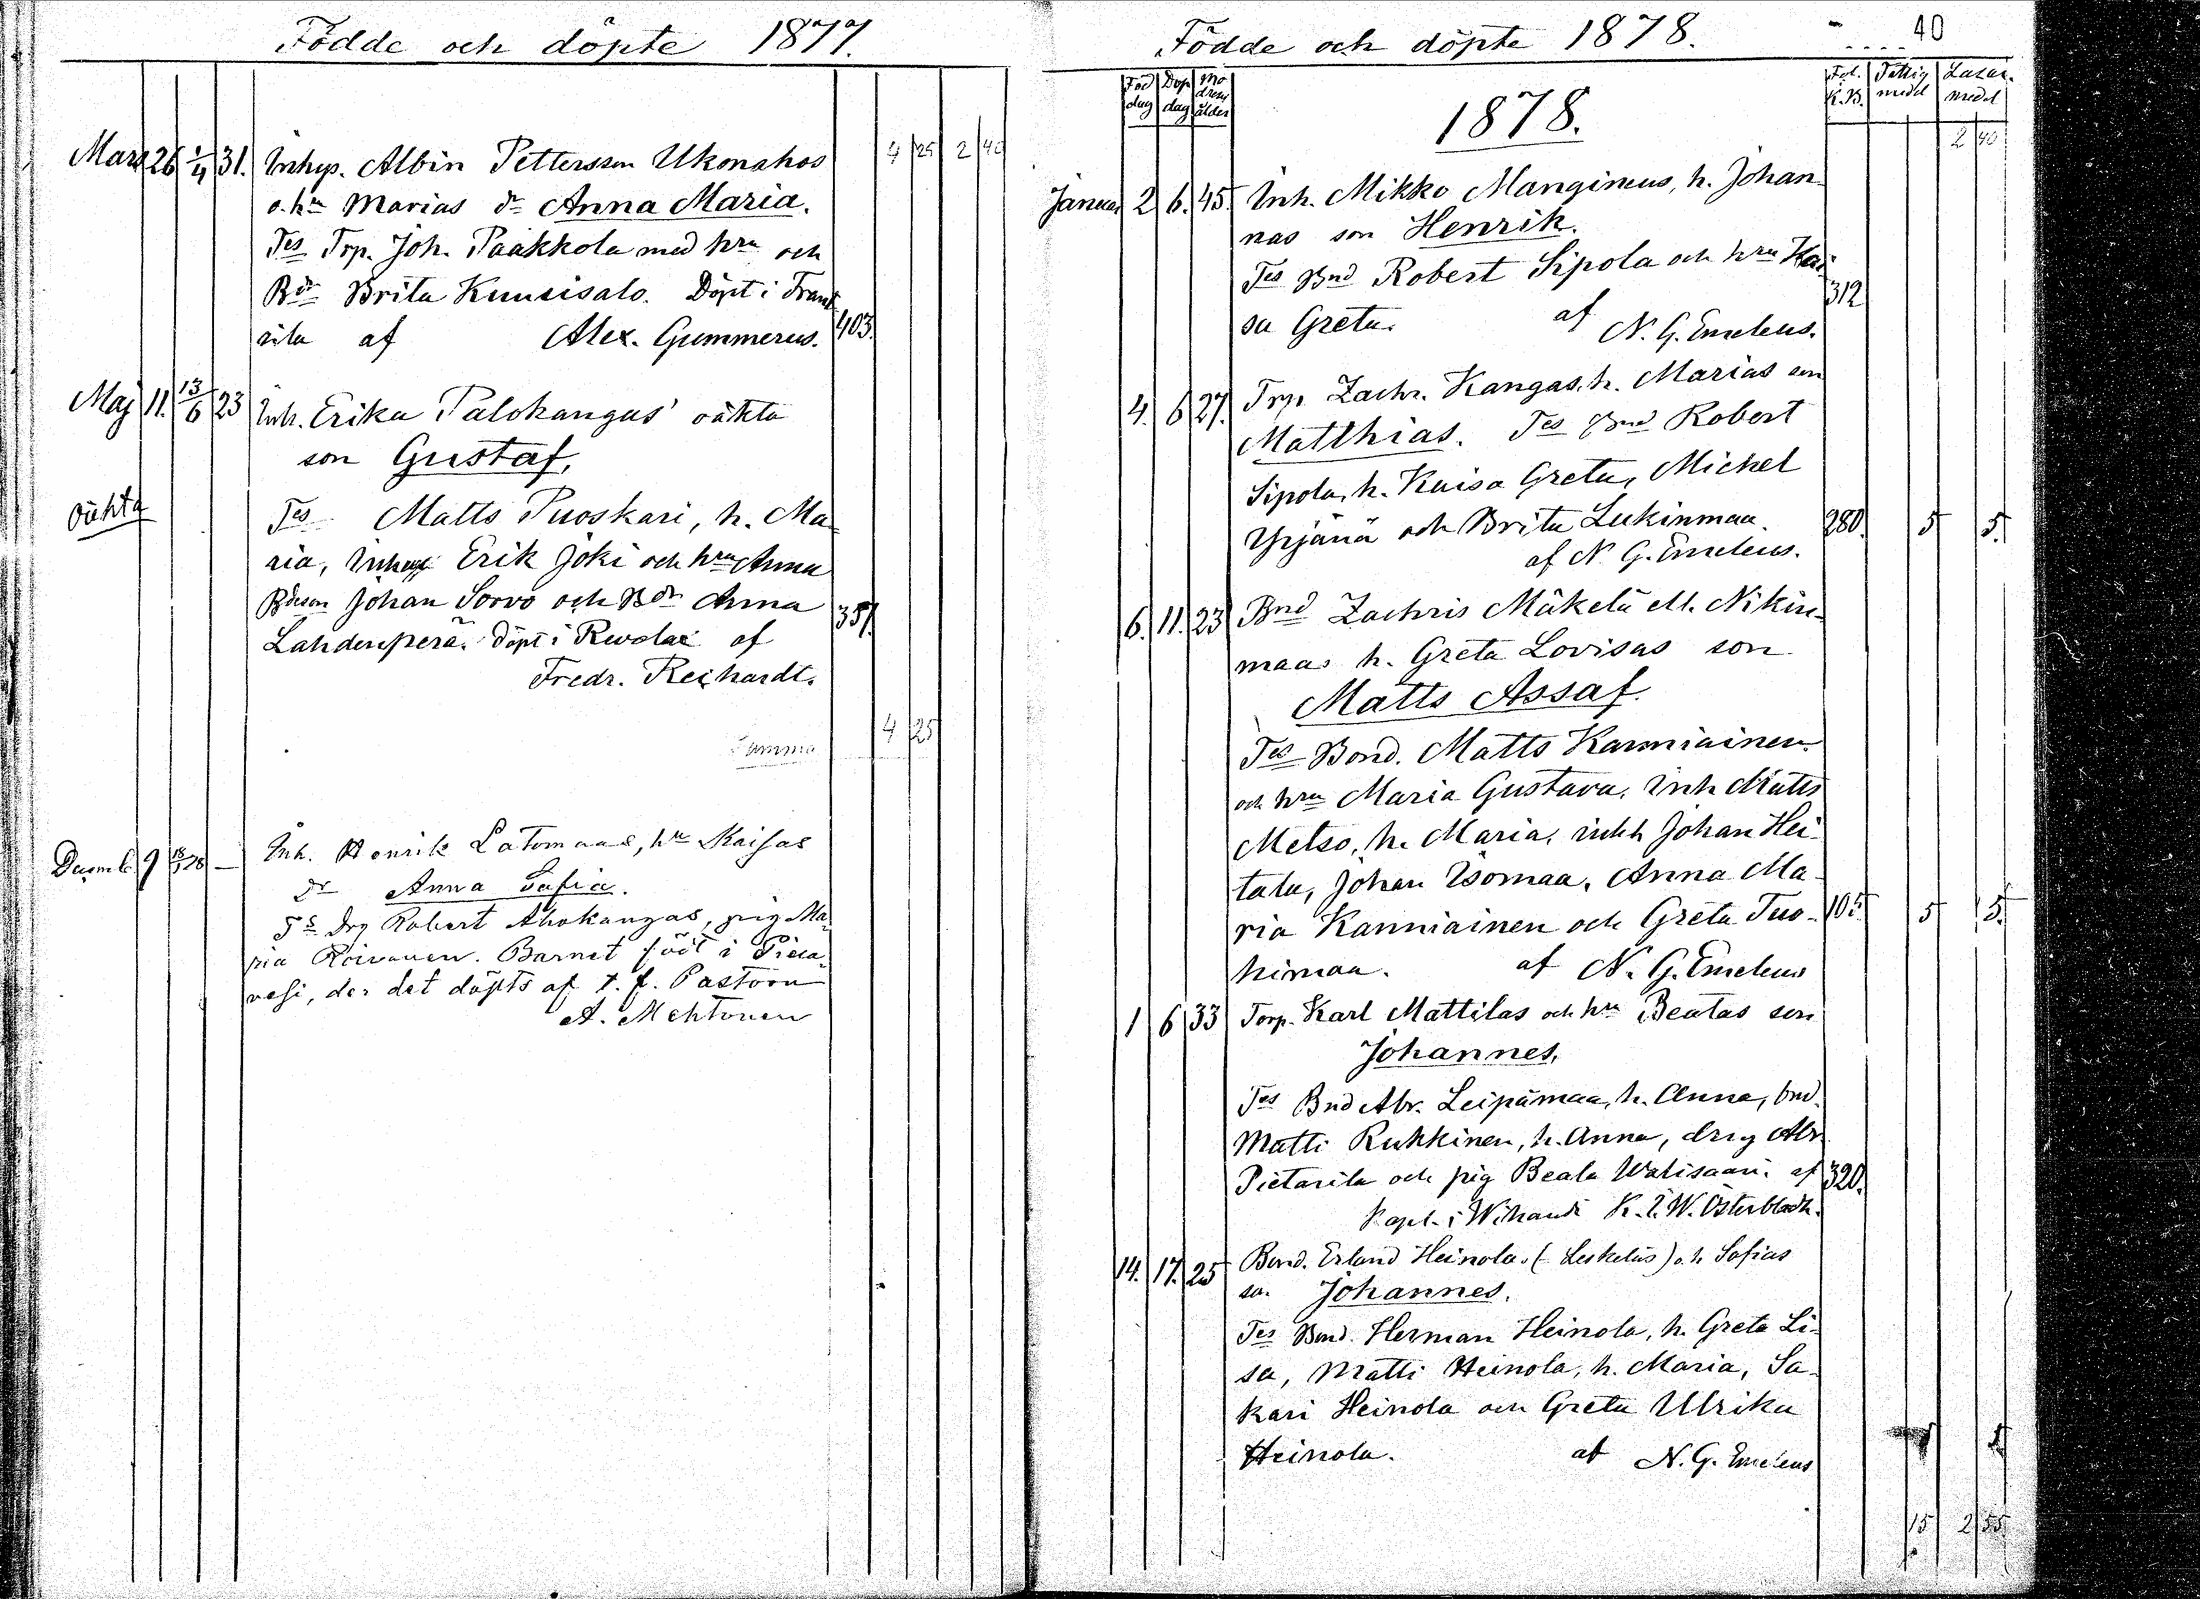 Födde och döpte 1877.
4 25 2 40
Mars 26 1/4 31. Inhys. Albin Pettersson Ukonahos
o. hru Marias dr Anna Maria.
Tes Trp. Joh. Paakkola med hru och
Bdr Brita Kuusisalo. Döpt i Frant
sila af Alex. Gummerus. 403.
Maj 11. 13/6 23 Inh. Erika Palokangas' oäkta
son Gustaf.
oäkta
Tes Matts Puoskari, h. Ma
ria, Inhys Erik Joki och hru Anna
Bdeson Johan Sorvo och Bdr Anna
Lahdenperä. Döpt i Revolax af 357.
Fredr. Reihardt.
Summa 4 25
Decemb. 9 18/1 78 — Inh. Henrik Latomaas, hu Kaisas
dr Anna Sofia.
Ts Drg Robert Ahokangas, pig Ma
ria Roivanen. Barnet föd i Piela
vesi, der det döpts af t. f. Pastorn
A. Mehtonen
Födde och döpte 1878.
40
Föd dag Dop dag Mo drens ålder
Fol. K.B. Fattig medel Lasar. medel
1878.
2 40
Januar 2 6. 45. Inh. Mikko Mangineus, h. Johan
nas son Henrik.
Tes Bnd Robert Sipola och hru Kai
sa Greta. af N. G. Emeleus. 312
4. 6 27. Trp Zachr. Kangas, h. Marias son
Matthias. Tes Bnd Robert
Sipola, h. Kaisa Greta, Michel
Yrjänä och Brita Lukinmaa. 280. 5 5.
af N. G. Emeleus.
6. 11. 23 Bnd Zachris Mäkelä el. Nikin
maas h. Greta Lovisas son
Matts Assaf.
Tes Bond. Matts Kanniainen
och hru Maria Gustava, Inh Matts
Metso, h. Maria, inhh Johan Hei
tala, Johan Isomaa, Anna Ma
ria Kanniainen och Greta Tuo- 105. 5 5.
himaa. af N. G. Emeleus
1 6 33 Torp. Karl Mattilas och hru Beatas son
Johannes.
Tes Bnd Abr. Leipämaa, h. Anna, bnd.
Matti Rukkinen, h. Anna, drng Abr
Pietarila och pig Beata Walisaari. af 320.
Kapl. i Wihandi K. E. W. Österbladh.
14. 17. 25 Bond. Erland Heinola. (Leskeläs) o. h Sofias
so. Johannes.
Tes Bond. Herman Heinola, h. Greta Li
sa, Matti Heinola, h. Maria, Sa
kari Heinola och Greta Ulrika
Heinola. af N. G. Emeleus
15 2 55